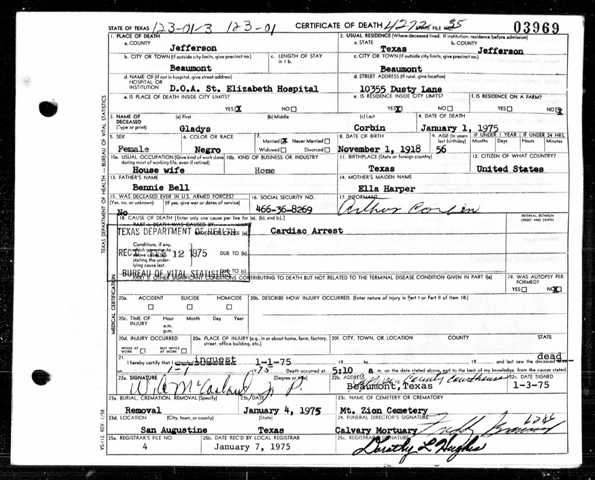 STATE OF TEXAS 123-01-3 123-01 CERTIFICATE OF DEATH 4272 35 03969
1. PLACE OF DEATH 2. USUAL RESIDENCE (Where deceased lived. If institution: residence before admission)
a. COUNTY a. STATE b. COUNTY
Jefferson Texas Jefferson
b. CITY OR TOWN (If outside city limits, give precinct no.) c. LENGTH OF STAY in 1 b. c. CITY OR TOWN (If outside city limits, give precinct no.)
Beaumont Beaumont
d. NAME OF (If not in hospital, give street address) HOSPITAL OR INSTITUTION d. STREET ADDRESS (If rural, give location)
D.O.A. St. Elizabeth Hospital 10355 Dusty Lane
e. IS PLACE OF DEATH INSIDE CITY LIMITS? e. IS RESIDENCE INSIDE CITY LIMITS? f. IS RESIDENCE ON A FARM?
YES X NO YES X NO YES NO X
3. NAME OF DECEASED (Type or print) (a) First (b) Middle (c) Last 4. DATE OF DEATH
Gladys Corbin January 1, 1975
5. SEX 6. COLOR OR RACE 7. Married X Never Married Widowed Divorced 8. DATE OF BIRTH 9. AGE (In years last birthday) IF UNDER 1 YEAR IF UNDER 24 HRS. Months Days Hours Min.
Female Negro November 1, 1918 56
10a. USUAL OCCUPATION (Give kind of work done during most of working life, even if retired) 10b. KIND OF BUSINESS OR INDUSTRY 11. BIRTHPLACE (State or foreign country) 12. CITIZEN OF WHAT COUNTRY?
House wife Home Texas United States
13. FATHER'S NAME 14. MOTHER'S MAIDEN NAME
Bennie Bell Ella Harper
15. WAS DECEASED EVER IN U.S. ARMED FORCES? (Yes, no, or unknown) (If yes, give war or dates of service) 16. SOCIAL SECURITY NO. 17. INFORMANT
No 466-36-8269 Arthur Corbin
18. CAUSE OF DEATH (Enter only one cause per line for (a), (b), and (c).) INTERVAL BETWEEN ONSET AND DEATH
TEXAS DEPARTMENT OF HEALTH Cardiac Arrest
Conditions, if any, DUE TO (b)
12 1975
stating the underlying cause last DUE TO (c)
BUREAU OF VITAL STATISTICS
OTHER SIGNIFICANT CONDITIONS CONTRIBUTING TO DEATH BUT NOT RELATED TO THE TERMINAL DISEASE CONDITION GIVEN IN PART I(a) 19. WAS AUTOPSY PERFORMED?
YES NO X
20a. ACCIDENT SUICIDE HOMICIDE 20b. DESCRIBE HOW INJURY OCCURRED. (Enter nature of injury in Part I or Part II of item 18.)
20c. TIME OF INJURY Hour Month Day Year
a.m.
p.m.
20d. INJURY OCCURRED WHILE AT WORK NOT WHILE AT WORK 20e. PLACE OF INJURY (e.g., in or about home, farm, factory, street, office building, etc.) 20f. CITY, TOWN, OR LOCATION COUNTY STATE
21. I hereby certify that I inquest 1-1-75 19 to 19 and last saw the deceased dead
1-1 75 Death occurred at 5:10 a m. on the date stated above, and to the best of my knowledge, from the causes stated.
22a. SIGNATURE (Degree or title) 22b. ADDRESS 22c. DATE SIGNED
J. P. County Courthouse Beaumont, Texas 1-3-75
23a. BURIAL, CREMATION, REMOVAL (Specify) 23b. DATE 23c. NAME OF CEMETERY OR CREMATORY
Removal January 4, 1975 Mt. Zion Cemetery
23d. LOCATION (City, town, or county) (State) 24. FUNERAL DIRECTOR'S SIGNATURE
San Augustine Texas Calvary Mortuary
25a. REGISTRAR'S FILE NO. 25b. DATE REC'D BY LOCAL REGISTRAR 25c. REGISTRAR'S SIGNATURE
4 January 7, 1975 Dorothy L Hughes
TEXAS DEPARTMENT OF HEALTH — BUREAU OF VITAL STATISTICS
MEDICAL CERTIFICATION